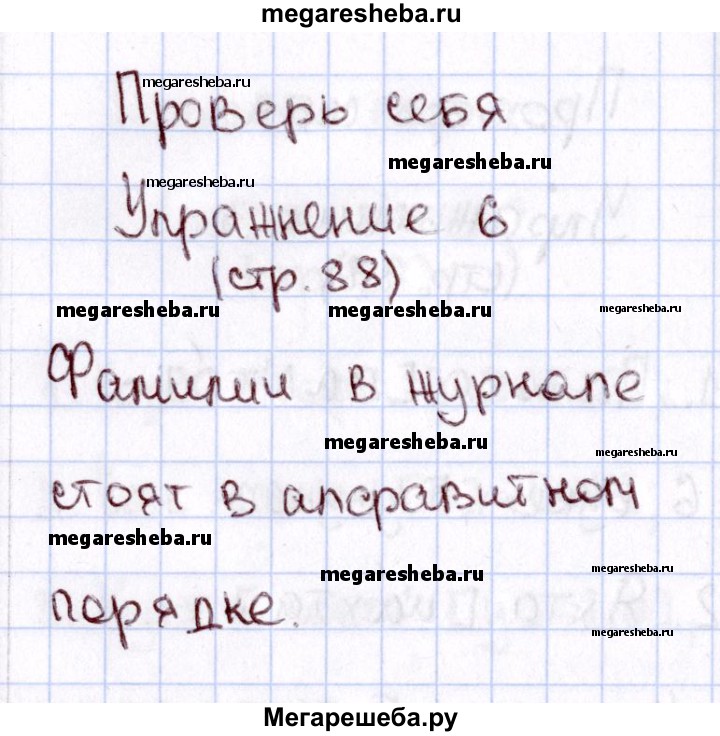 megaresheba.ru
megaresheba.ru
Проверь себя
megaresheba.ru
megaresheba.ru
Упражнение 6
(стр. 88)
megaresheba.ru megaresheba.ru megaresheba.ru
Фамилии в журнале
megaresheba.ru megaresheba.ru
стоят в алфавитном
megaresheba.ru
megaresheba.ru megaresheba.ru
порядке.
megaresheba.ru
Мегарешеба.ру